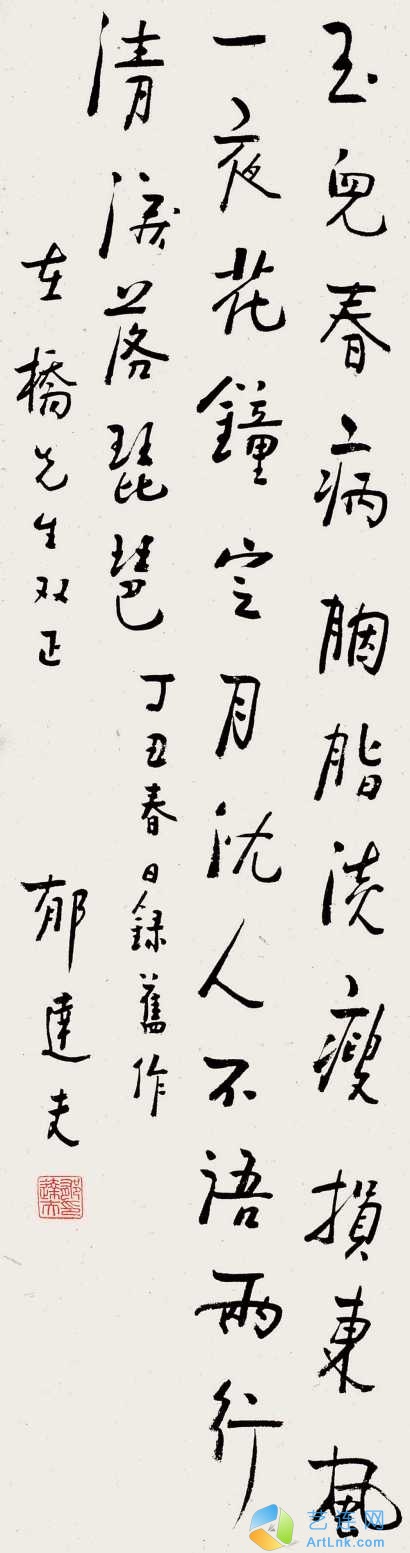 玉兒春病胭脂淡瘦損東風
一夜花鐘定月沈人不語兩行
清淚落琵琶
丁丑春日錄舊作
橋先生双正
郁達夫
艺连网
ArtLnk.com